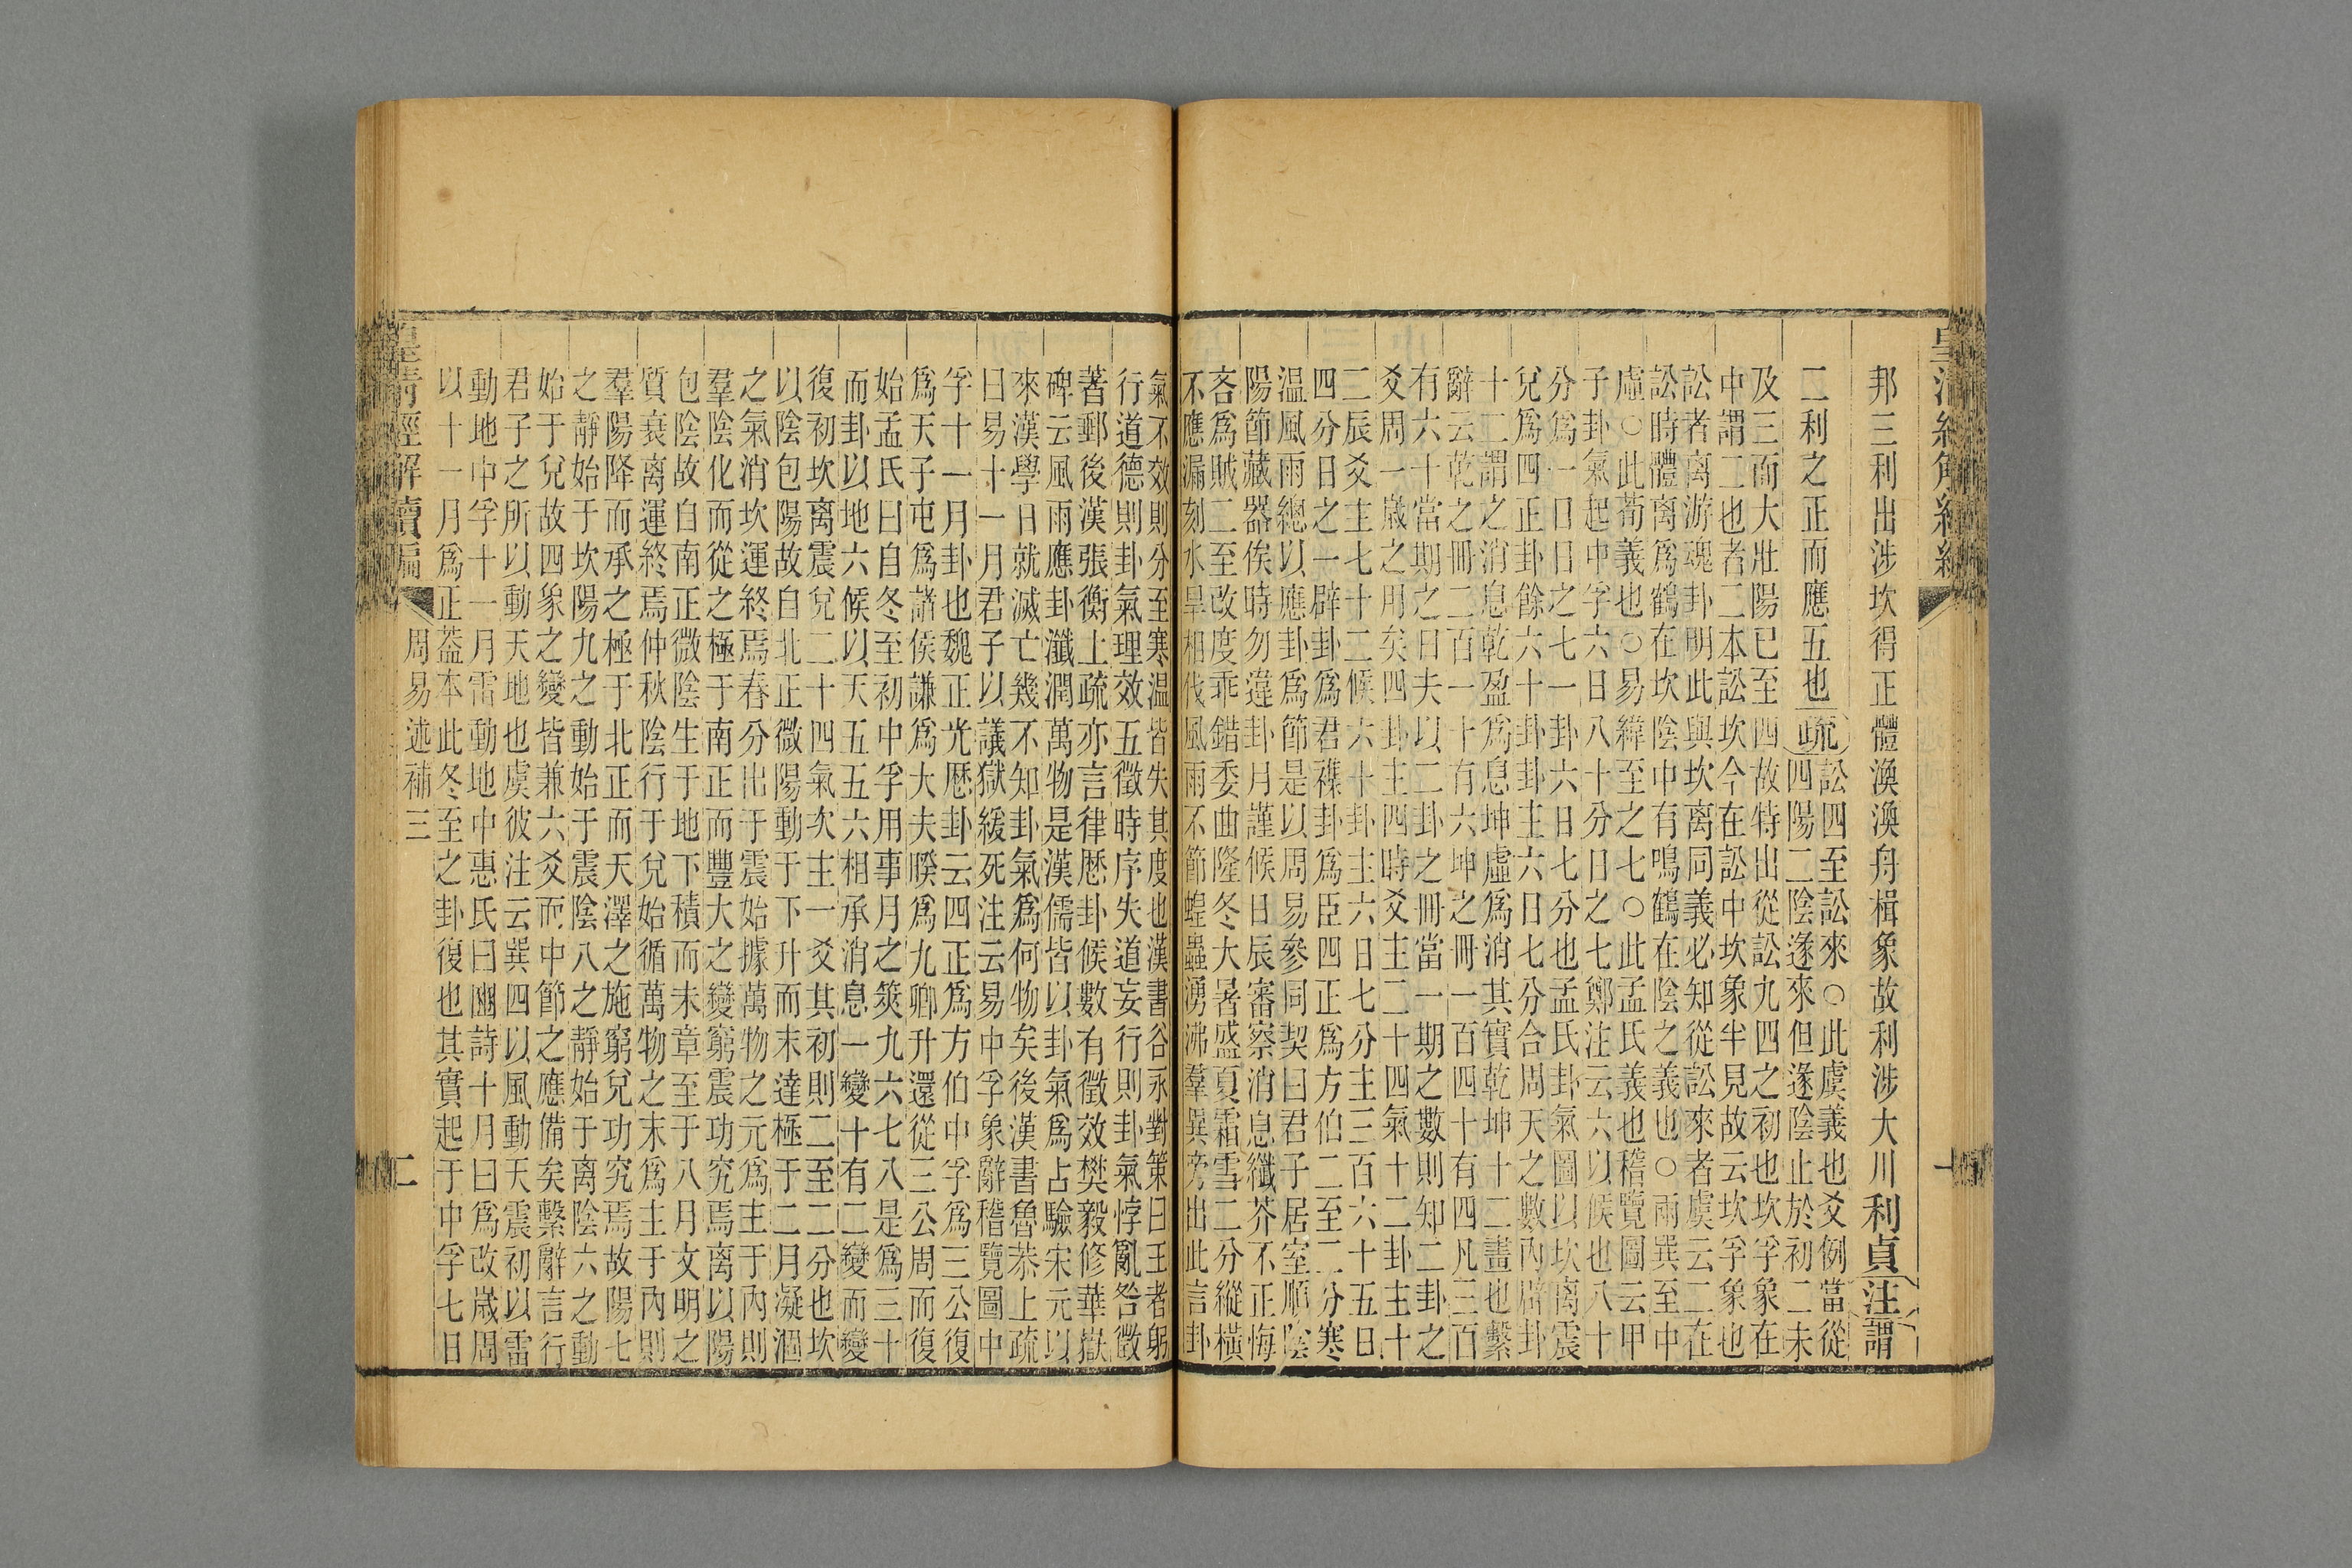 邦三利出涉坎得正體渙渙舟楫象故利涉大川利貞注謂
二利之正而應五也疏訟四至訟來○此虞義也爻例當從
四陽二陰遂來但遂陰止於初二未
及三而大壯陽已至四故特出從訟九四之初也坎孚象在
中謂二也者二本訟坎今在訟中坎象半見故云坎孚象也
訟者离游魂卦明此與坎离同義必知從訟來者虞云二在
訟時體离爲鶴在坎陰中有鳴鶴在陰之義也○雨巽至中
虛○此荀義也○易緯至之七○此孟氏義也稽覽圖云甲
子卦氣起中孚六日八十分日之七鄭注云六以候也八十
分爲一日日之七一卦六日七分也孟氏卦氣圖以坎离震
兌爲四正卦餘六十卦卦主六日七分合周天之數內辟卦
十二謂之消息乾盈爲息坤虛爲消其實乾坤十二畫也繫
辭云乾之冊二百一十有六坤之冊一百四十有四凡三百
有六十當期之日夫以二卦之冊當一期之數則知二卦之
爻周一歲之用矣四卦主四時爻主二十四氣十二卦主十
二辰爻主七十二候六十卦主六日七分主三百六十五日
四分日之一辟卦爲君襍卦爲臣四正爲方伯二至二分寒
温風雨總以應卦爲節是以周易參同契曰君子居室順陰
陽節藏器俟時勿違卦月謹候日辰審察消息纖芥不正悔
吝爲賊二至改度乖錯委曲隆冬大暑盛夏霜雪二分縱橫
不應漏刻水旱相伐風雨不節蝗蟲湧沸羣異旁出此言卦
氣不效則分至寒温皆失其度也漢書谷永對策曰王者躬
行道德則卦氣理效五徵時序失道妄行則卦氣悖亂咎徵
著郵後漢張衡上疏亦言律厯卦候數有徵效樊毅修華嶽
碑云風雨應卦瀸潤萬物是漢儒皆以卦氣爲占驗宋元以
來漢學日就滅亡幾不知卦氣爲何物矣後漢書魯恭上疏
曰易十一月君子以議獄緩死注云易中孚象辭稽覽圖中
孚十一月卦也魏正光厯卦云四正爲方伯中孚爲三公復
爲天子屯爲諸侯謙爲大夫睽爲九卿升還從三公周而復
始孟氏曰自冬至初中孚用事月之筴九六七八是爲三十
而卦以地六候以天五五六相承消息一變十有二變而變
復初坎离震兌二十四氣次主一爻其初則二至二分也坎
以陰包陽故自北正微陽動于下升而未達極于二月凝涸
之氣消坎運終焉春分出于震始據萬物之元爲主于內則
羣陰化而從之極于南正而豐大之變窮震功究焉离以陽
包陰故自南正微陰生于地下積而未章至于八月文明之
質衰离運終焉仲秋陰行于兌始循萬物之末爲主于內則
羣陽降而承之極于北正而天澤之施窮兌功究焉故陽七
之靜始于坎陽九之動始于震陰八之靜始于离陰六之動
始于兌故四象之變皆兼六爻而中節之應備矣繫辭言行
君子之所以動天地也虞彼注云巽四以風動天震初以雷
動地中孚十一月雷動地中惠氏曰豳詩十月曰爲改歲周
以十一月爲正葢本此冬至之卦復也其實起于中孚七日
皇清經解續編　周易述補三　二